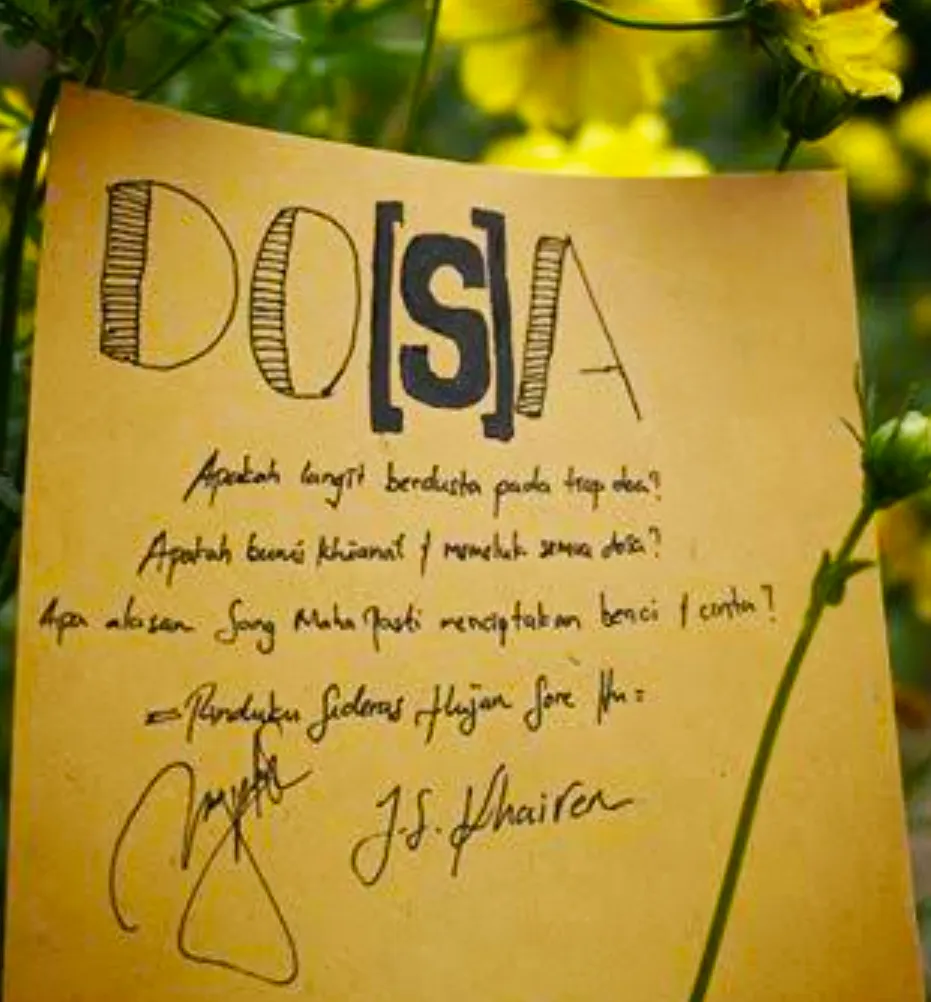 DO[S]A
Apakah langit berdusta pada tiap doa?
Apakah bumi khianat / memeluk semua dosa?
Apa alasan Sang Maha Pasti menciptakan benci / cinta?
= Rinduku Sederas Hujan Sore Itu =
J.S. Khairen